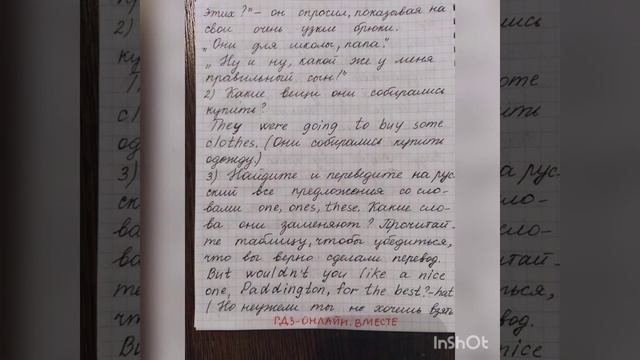 этих?" – он спросил, показовая на
свои очень узкие брюки.
„Они для школы, папа."
„Ну и ну, какой же у меня
правильный сын!"
2) Какие вещи они собирались
купить?
They were going to buy some
clothes. (Они собирались купить
одежду.)
3) Найдите и переведите на рус
ский все предложения со сло-
вами one, ones, these. Какие сло-
ва они заменяют? Прочитай-
те таблицу, чтобы убедиться,
что вы верно сделали перевод.
But wouldn't you like a nice
one, Paddington, for the best?-hat
(Но неужели ты не хочешь взять
ГДЗ-ОНЛАЙН.ВМЕСТЕ
InShOt